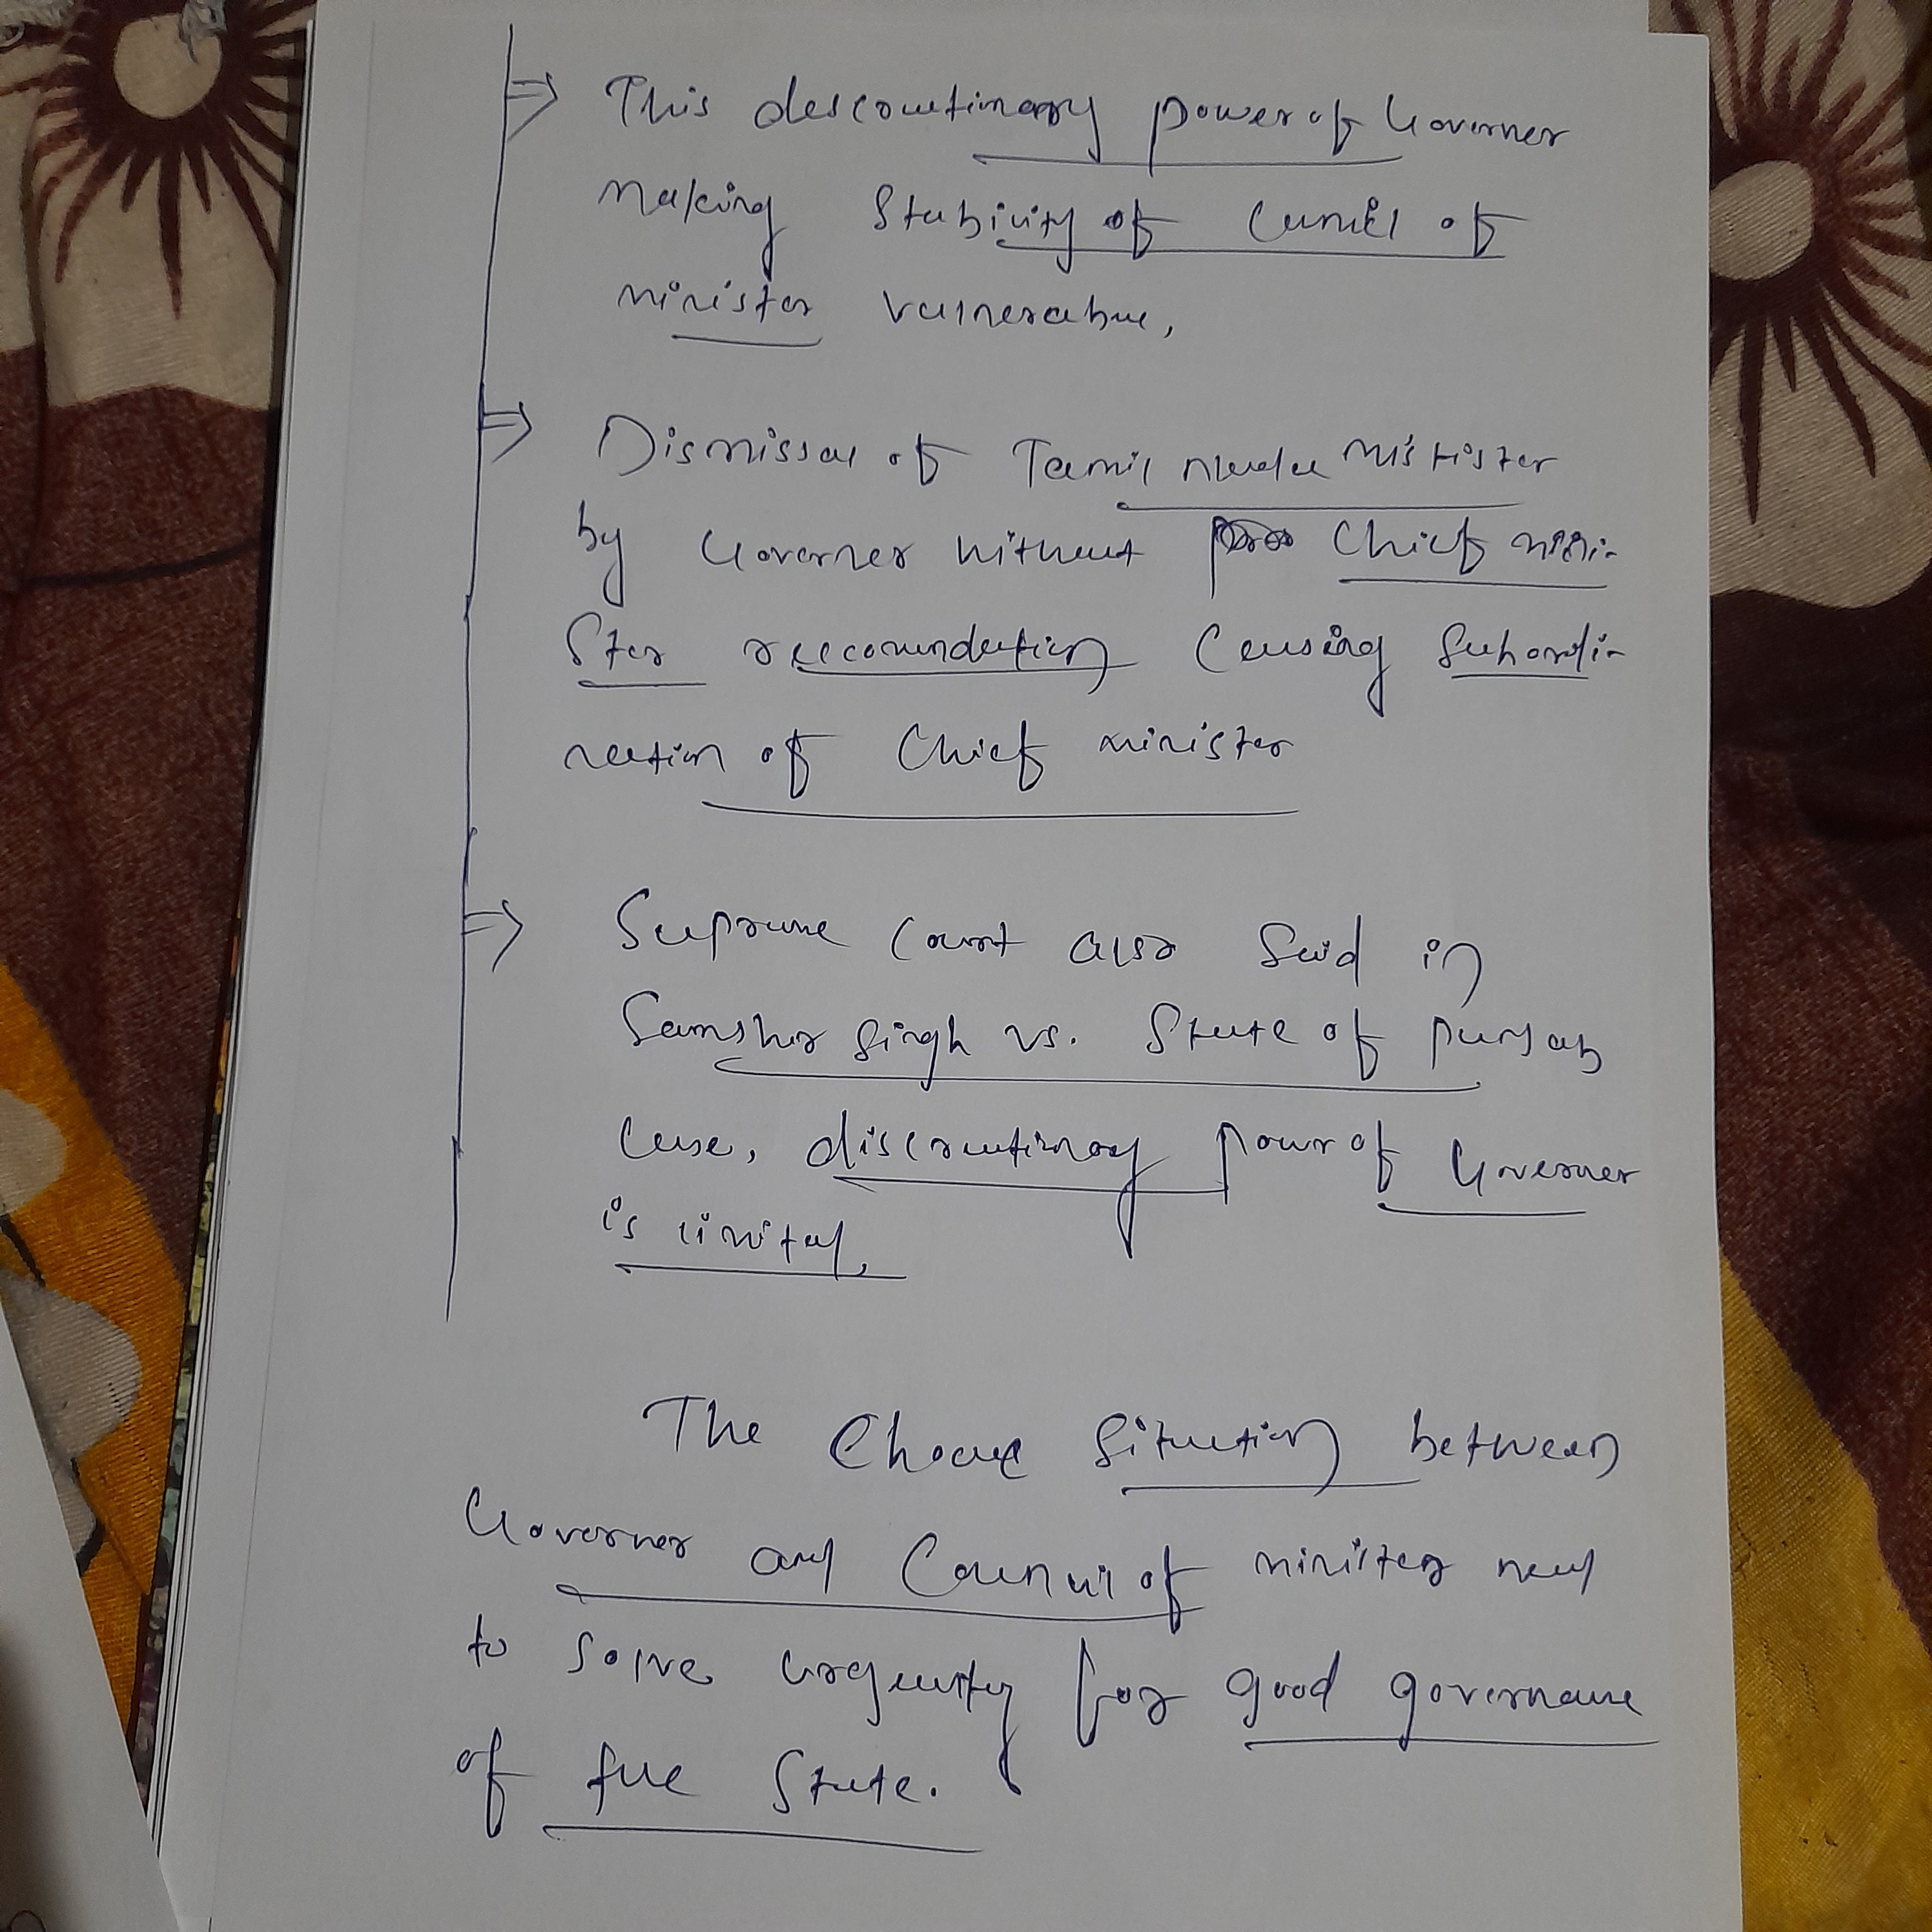 ⇒ This descreutinary power of Governer
making Stability of Cuncil of
minister vulnerable,
⇒ Dismissal of Tamil nadu mistister
by Governer without Chief mini-
ster reecomundation Causing Subordi-
nation of Chief minister
⇒ Supreme Court also Said in
Samsher Singh vs. State of punjab
Case, discreutinary power of Governer
is limited.
The situation between
Governer and Council of minister need
to solve urgently for good governance
of the State.